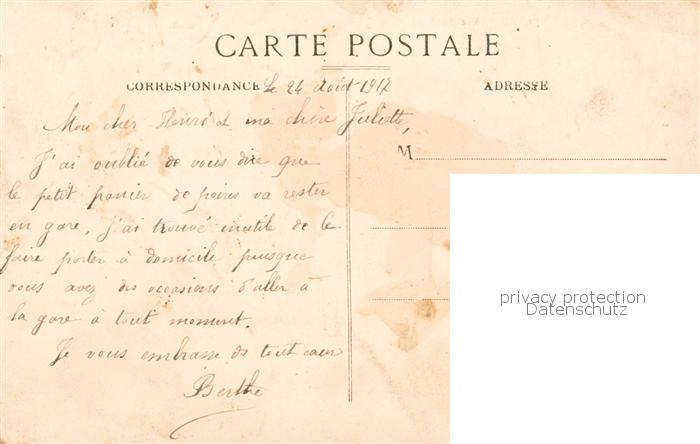 CARTE POSTALE
CORRESPONDANCE Le 24 Août 1917 ADRESSE
Mon cher Henri et ma chère Juliette,
M
J'ai oublié de vous dire que
le petit panier de poires va rester
en gare, j'ai trouvé inutile de le
faire porter à domicile puisque
vous avez des occasions d'aller à
la gare à tout moment.
Je vous embrasse de tout cœur
Berthe
privacy protection
Datenschutz